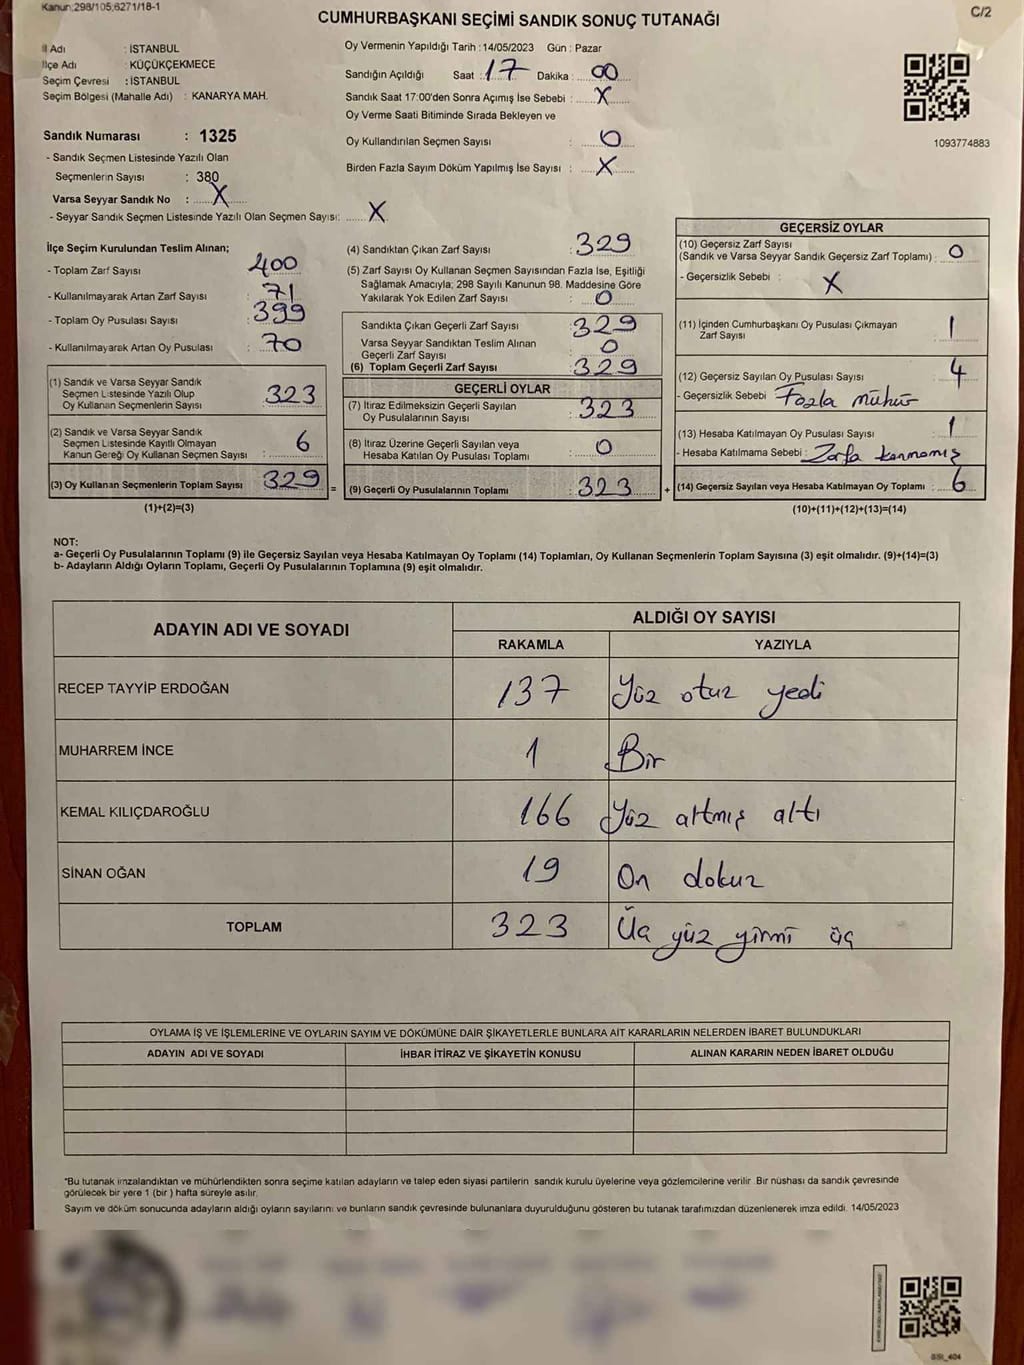 Kanun:298/105;6271/18-1
CUMHURBAŞKANI SEÇİMİ SANDIK SONUÇ TUTANAĞI
C/2
İl Adı : İSTANBUL
İlçe Adı : KÜÇÜKÇEKMECE
Seçim Çevresi : İSTANBUL
Seçim Bölgesi (Mahalle Adı) : KANARYA MAH.
Sandık Numarası : 1325
- Sandık Seçmen Listesinde Yazılı Olan
Seçmenlerin Sayısı : 380
Varsa Seyyar Sandık No : X
- Seyyar Sandık Seçmen Listesinde Yazılı Olan Seçmen Sayısı: X
Oy Vermenin Yapıldığı Tarih : 14/05/2023 Gün : Pazar
Sandığın Açıldığı Saat : 17 Dakika : 00
Sandık Saat 17:00'den Sonra Açımış İse Sebebi : X
Oy Verme Saati Bitiminde Sırada Bekleyen ve
Oy Kullandırılan Seçmen Sayısı : 0
Birden Fazla Sayım Döküm Yapılmış İse Sayısı : X
1093774883
İlçe Seçim Kurulundan Teslim Alınan;
- Toplam Zarf Sayısı : 400
- Kullanılmayarak Artan Zarf Sayısı : 71
- Toplam Oy Pusulası Sayısı : 399
- Kullanılmayarak Artan Oy Pusulası : 70
(1) Sandık ve Varsa Seyyar Sandık
Seçmen Listesinde Yazılı Olup
Oy Kullanan Seçmenlerin Sayısı : 323
(2) Sandık ve Varsa Seyyar Sandık
Seçmen Listesinde Kayıtlı Olmayan
Kanun Gereği Oy Kullanan Seçmen Sayısı : 6
(3) Oy Kullanan Seçmenlerin Toplam Sayısı : 329 =
(1)+(2)=(3)
(4) Sandıktan Çıkan Zarf Sayısı : 329
(5) Zarf Sayısı Oy Kullanan Seçmen Sayısından Fazla İse, Eşitliği
Sağlamak Amacıyla; 298 Sayılı Kanunun 98. Maddesine Göre
Yakılarak Yok Edilen Zarf Sayısı : 0
Sandıkta Çıkan Geçerli Zarf Sayısı : 329
Varsa Seyyar Sandıktan Teslim Alınan
Geçerli Zarf Sayısı : 0
(6) Toplam Geçerli Zarf Sayısı : 329
GEÇERLİ OYLAR
(7) İtiraz Edilmeksizin Geçerli Sayılan
Oy Pusulalarının Sayısı : 323
(8) İtiraz Üzerine Geçerli Sayılan veya
Hesaba Katılan Oy Pusulası Toplamı : 0
(9) Geçerli Oy Pusulalarının Toplamı : 323 +
GEÇERSİZ OYLAR
(10) Geçersiz Zarf Sayısı
(Sandık ve Varsa Seyyar Sandık Geçersiz Zarf Toplamı) : 0
- Geçersizlik Sebebi : X
(11) İçinden Cumhurbaşkanı Oy Pusulası Çıkmayan
Zarf Sayısı : 1
(12) Geçersiz Sayılan Oy Pusulası Sayısı : 4
- Geçersizlik Sebebi : Fazla mühür
(13) Hesaba Katılmayan Oy Pusulası Sayısı : 1
- Hesaba Katılmama Sebebi : Zarfa konmamış
(14) Geçersiz Sayılan veya Hesaba Katılmayan Oy Toplamı : 6
(10)+(11)+(12)+(13)=(14)
NOT:
a- Geçerli Oy Pusulalarının Toplamı (9) ile Geçersiz Sayılan veya Hesaba Katılmayan Oy Toplamı (14) Toplamları, Oy Kullanan Seçmenlerin Toplam Sayısına (3) eşit olmalıdır. (9)+(14)=(3)
b- Adayların Aldığı Oyların Toplamı, Geçerli Oy Pusulalarının Toplamına (9) eşit olmalıdır.
ADAYIN ADI VE SOYADI
ALDIĞI OY SAYISI
RAKAMLA YAZIYLA
RECEP TAYYİP ERDOĞAN 137 Yüz otuz yedi
MUHARREM İNCE 1 Bir
KEMAL KILIÇDAROĞLU 166 Yüz altmış altı
SİNAN OĞAN 19 On dokuz
TOPLAM 323 Üç yüz yirmi üç
OYLAMA İŞ VE İŞLEMLERİNE VE OYLARIN SAYIM VE DÖKÜMÜNE DAİR ŞİKAYETLERLE BUNLARA AİT KARARLARIN NELERDEN İBARET BULUNDUKLARI
ADAYIN ADI VE SOYADI İHBAR İTİRAZ VE ŞİKAYETİN KONUSU ALINAN KARARIN NEDEN İBARET OLDUĞU
*Bu tutanak imzalandıktan ve mühürlendikten sonra seçime katılan adayların ve talep eden siyasi partilerin sandık kurulu üyelerine veya gözlemcilerine verilir. Bir nüshası da sandık çevresinde
görülecek bir yere 1 (bir ) hafta süreyle asılır.
Sayım ve döküm sonucunda adayların aldığı oyların sayılarını ve bunların sandık çevresinde bulunanlara duyurulduğunu gösteren bu tutanak tarafımızdan düzenlenerek imza edildi. 14/05/2023